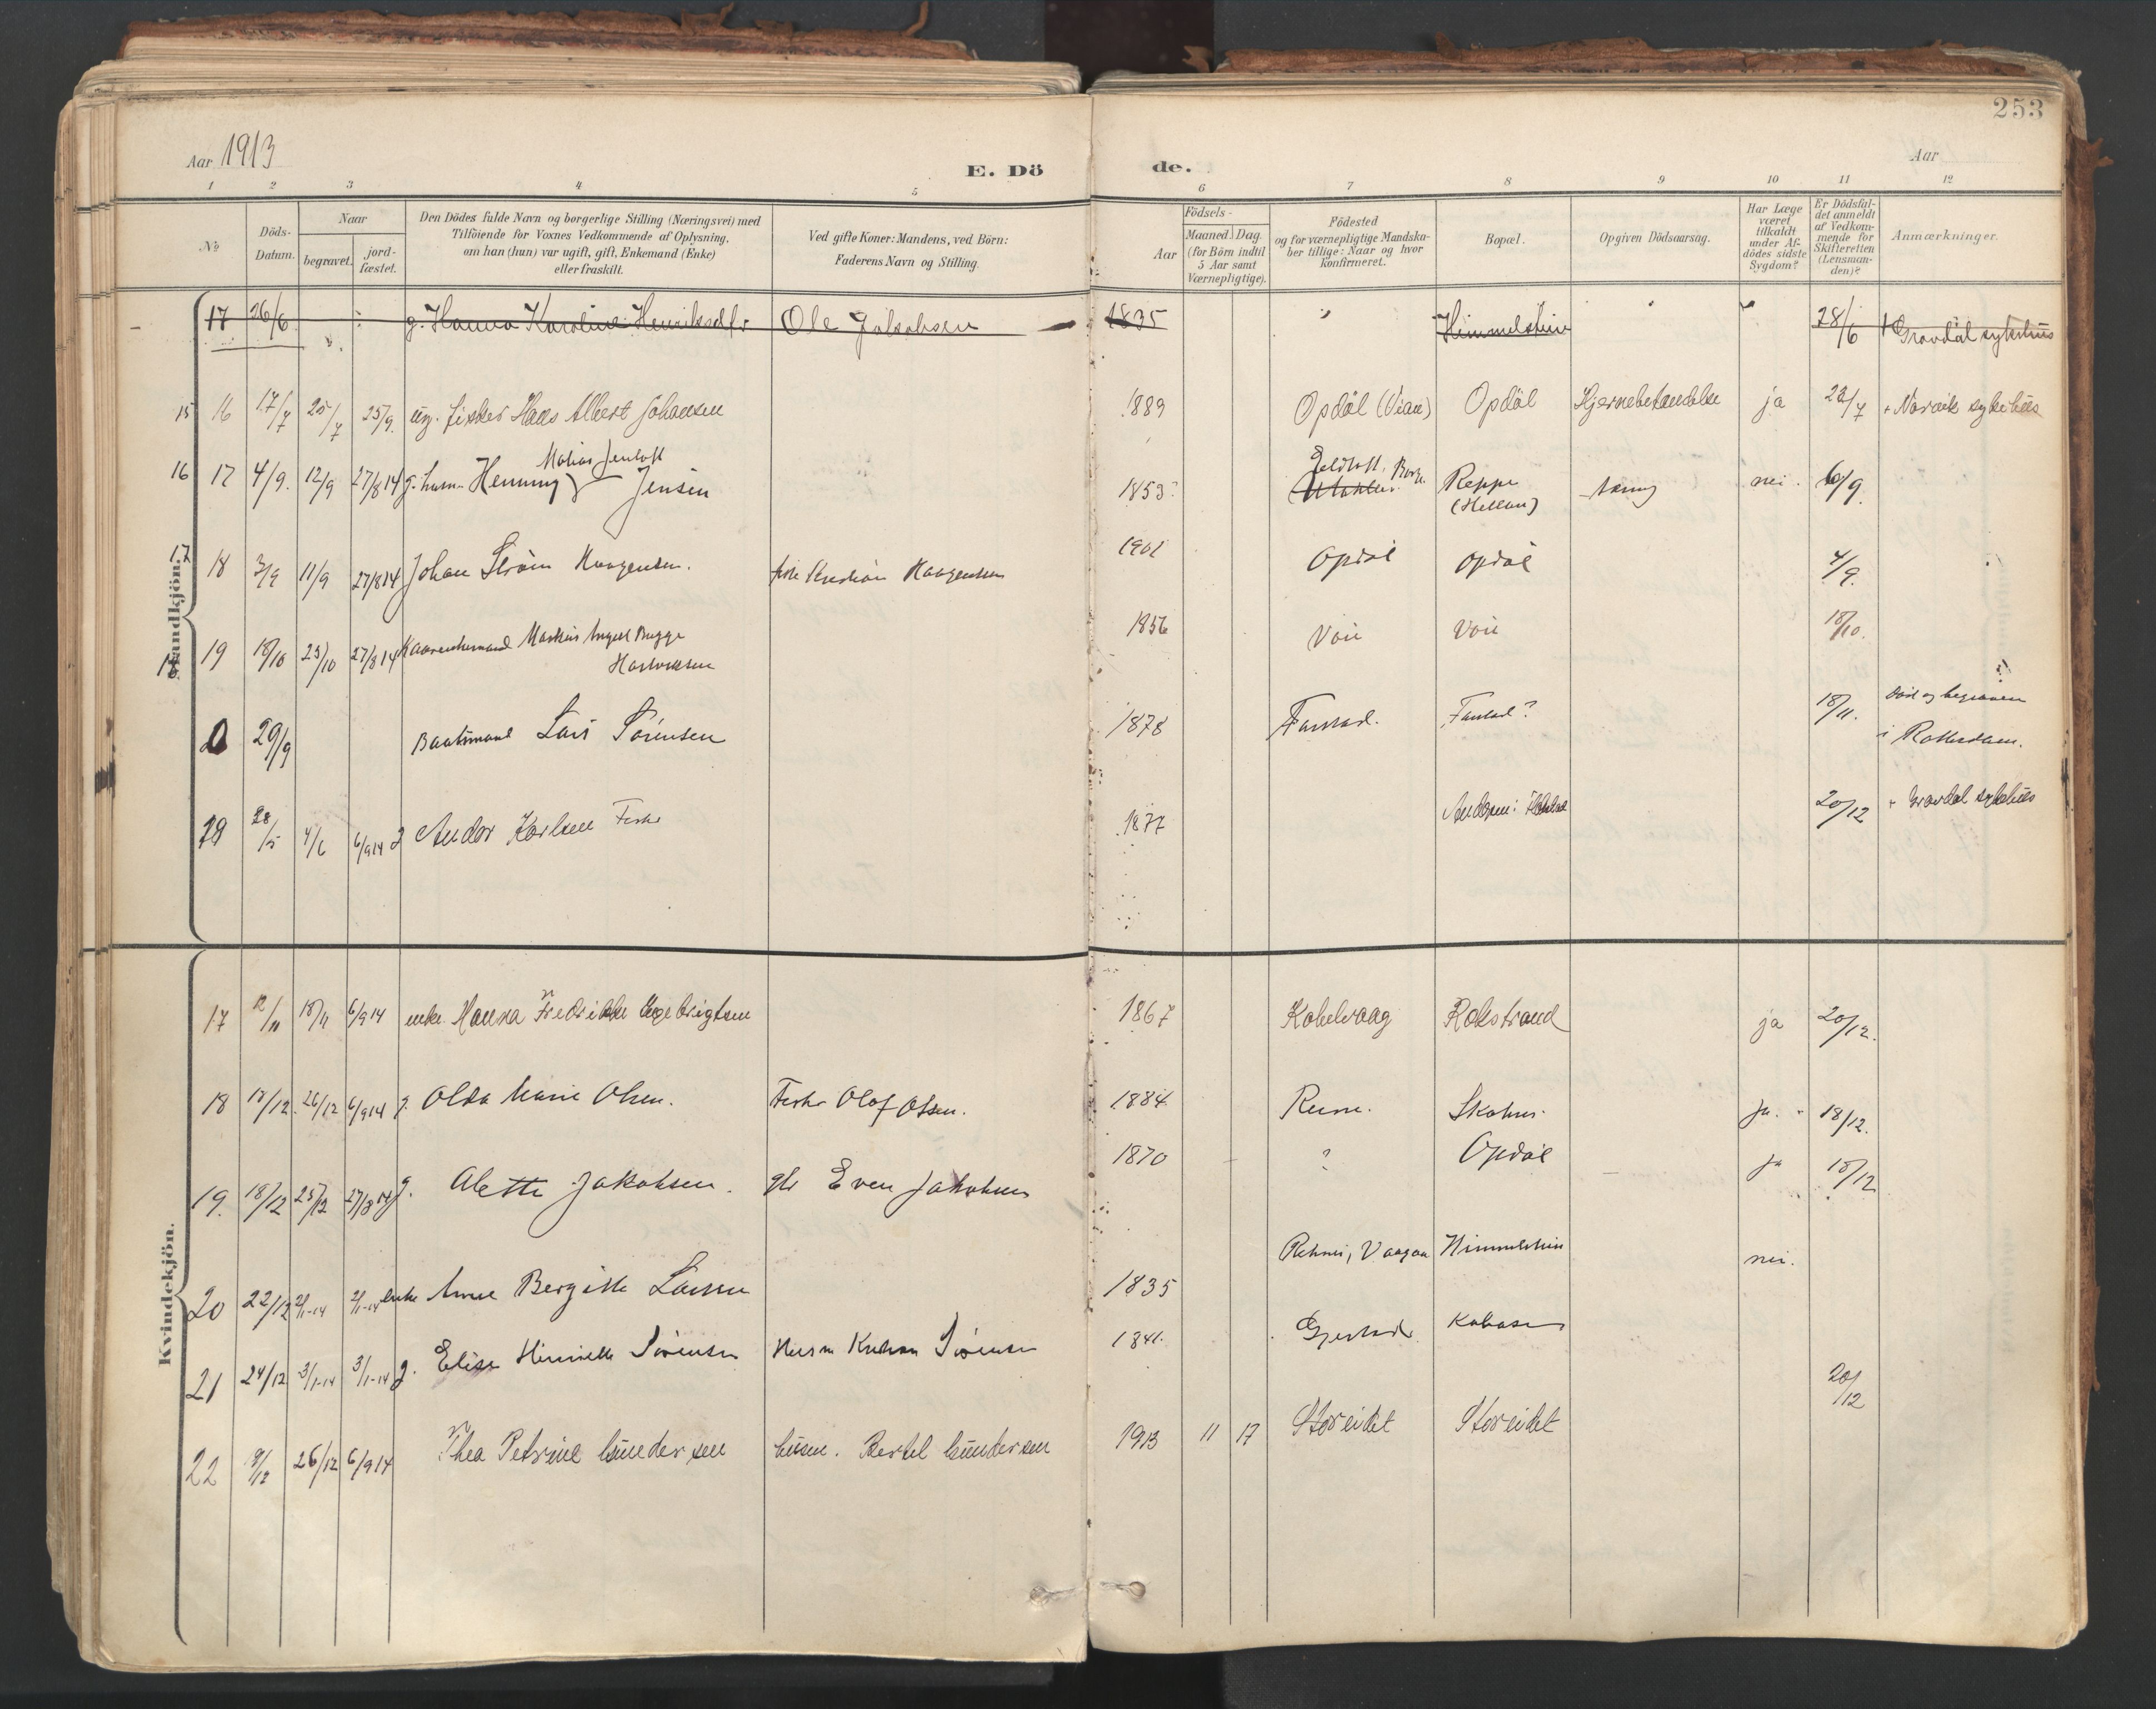 253
Aar 1913
E. Dö
de.
Aar
1 2 3 4 5 6 7 8 9 10 11 12
№
Döds-
Datum.
Naar
begravet.
jord-
fæstet.
Den Dödes fulde Navn og borgerlige Stilling (Næringsvei) med
Tilföiende for Voxnes Vedkommende af Oplysning,
om han (hun) var ugift, gift, Enkemand (Enke)
eller fraskilt.
Ved gifte Koner: Mandens, ved Börn:
Faderens Navn og Stilling.
Födsels-
Aar
Maaned. Dag.
(for Börn indtil
5 Aar samt
Værnepligtige).
Födested
og for værnepligtige Mandska-
ber tillige: Naar og hvor
konfirmeret.
Bopæl.
Opgiven Dödsaarsag.
Har Læge
været
tilkaldt
under Af-
dödes sidste
Sygdom?
Er Dödsfal-
det anmeldt
af Vedkom-
mende for
Skifteretten
(Lensman-
den)?
Anmærkninger.
Mandkjön.
17 26/6 g. Hanna Karoline Henriksdtr Ole Jakobsen 1835 Himmelstein 28/6 + Gravdal sykehus
15 16 17/7 25/7 25/9. ug. fisker Hans Albert Johansen 1889 Opdöl (Vian) Opdöl Hjernebetændelse ja 22/7 + Narvik sykehus
16 17 4/9. 12/9 27/8 14 g. husm. Henning Jensen 1853 Reppe nei. 6/9.
(Hellan)
17 18 3/9 11/9 27/8 14 Johan Ström Haagensen. fisk Kristian Haagensen 1901 Opdöl Opdöl 4/9.
18 19 18/10 23/10 27/8 14 Kaarenkemand Markus Angell Bugge 1856 Voie Voie 18/10.
Hartviksen
20 29/9 Baatsmand Lars Sörensen 1878 Farstad. Farstad? 18/11. död og begraven
i Rotterdam.
28 28/5 4/6 6/9 14 g Andor Karlsen Fisker 1877 20/12 + Gravdal sykehus
Kvindekjön.
17 12/11 18/11 6/9 14 enke. Hanna Fredrikke Ingebrigtsen 1867 Kabelvaag Rolostrand ja 20/12.
18 18/12. 26/12 6/9 14 g. Olea Marie Olsen. Fisker Olaf Olsen. 1884 Reine. Skotnes. ja. 18/12.
19. 18/12 23/12 27/8 14 g. Alette Jakobsen. gbr Even Jakobsen 1870 ? Opdöl ja 18/12
20 22/12 2/1-14 2/1-14 enke Anne Bergitte Larsen 1835 Vaagan Himmelstein nei.
21 24/12 3/1-14 3/1-14 g. Elise Henriette Sörensen Husm Kristian Sörensen 1841. Gjerstad
22 9/12 26/12 6/9 14 Thea Petrine Gundersen husm. Bertel Gundersen 1913 11 17 Storeidet Storeidet 20/12